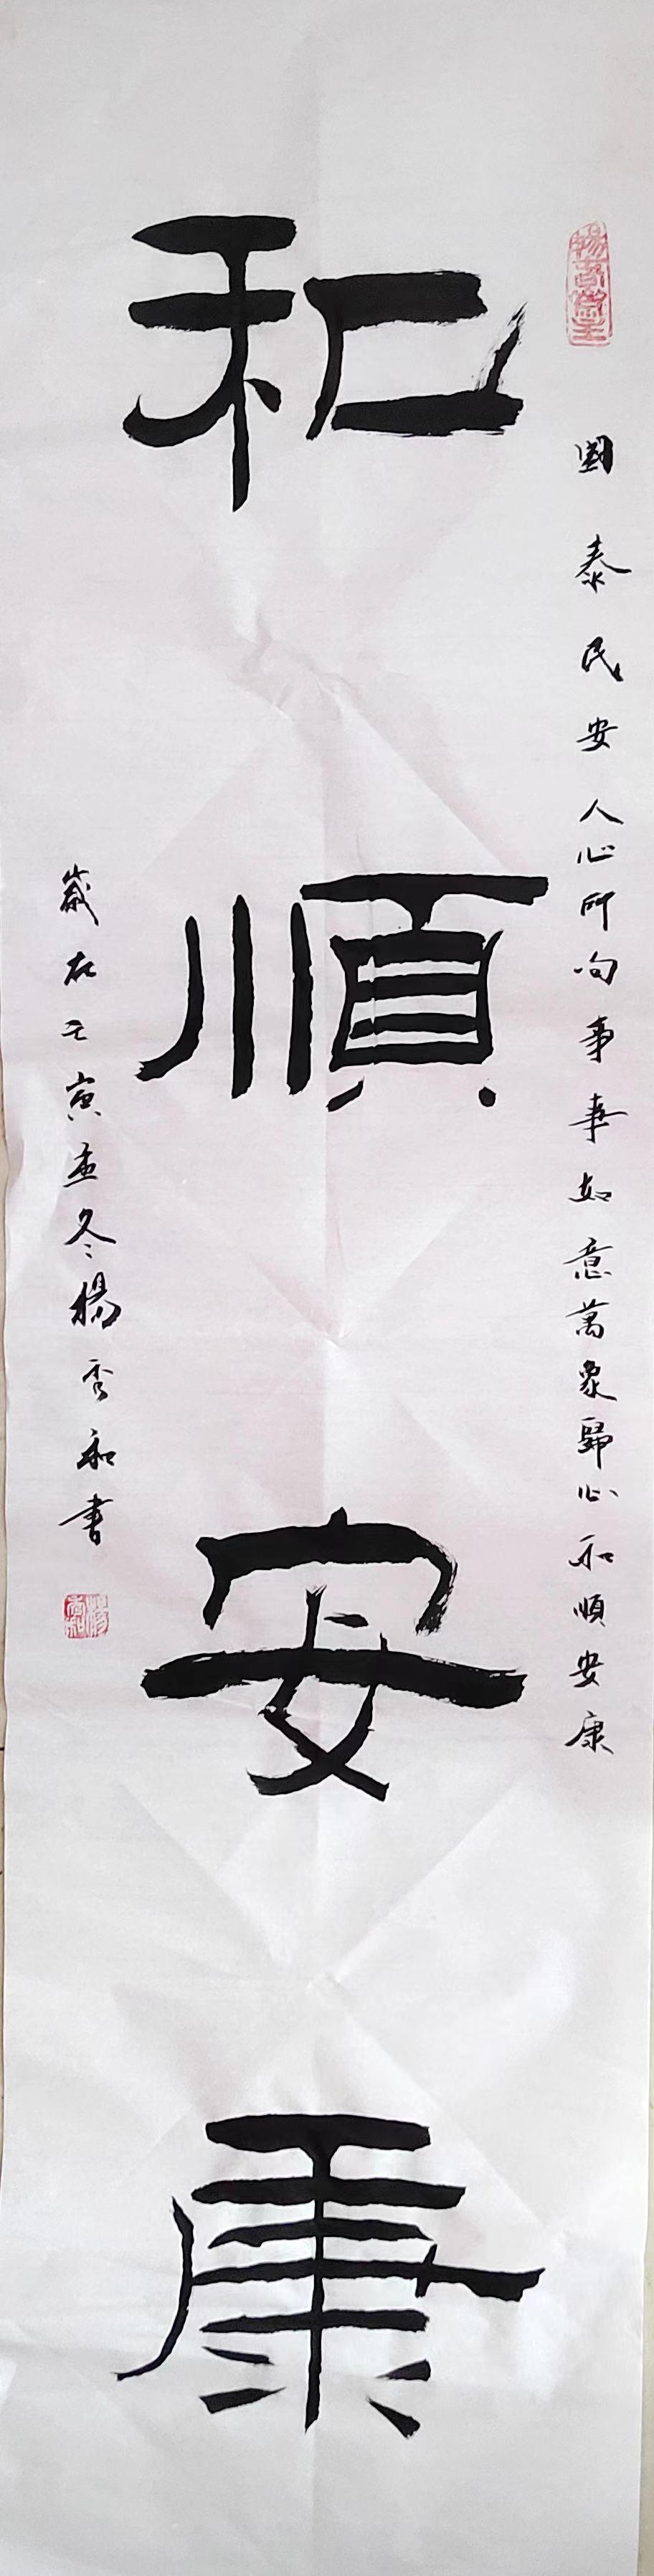 和順安康
國泰民安人心所向事事如意萬象歸心和順安康
歲在壬寅孟冬楊秀和書